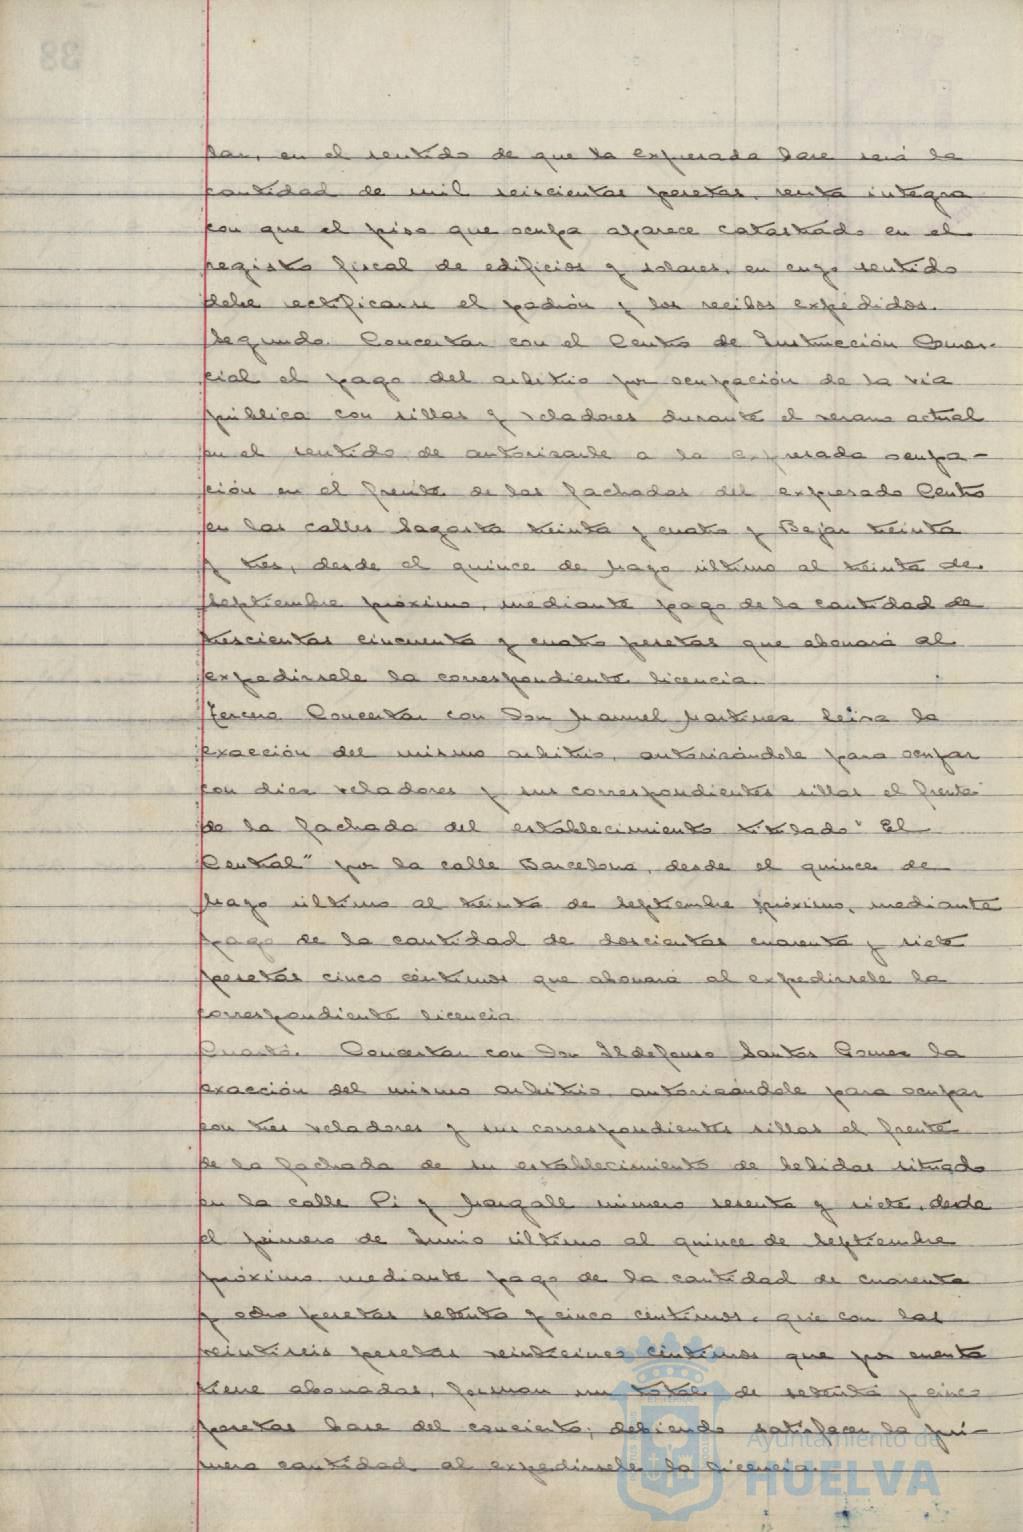 sar, en el sentido de que la expresada base será la
cantidad de mil seiscientas pesetas, renta integra
con que el piso que ocupa aparece catastrado en el
registro fiscal de edificios y solares, en cuyo sentido
debe rectificarse el padrón y los recibos expedidos.
Segundo. Concertar con el Centro de Instrucción Comer-
cial el pago del arbitrio por ocupación de la via
pública con sillas y veladores durante el verano actual
en el sentido de autorizarle a la expresada ocupa-
ción en el frente de las fachadas del expresado Centro
en las calles Sagasta treinta y cuatro y Bejar treinta
y tres, desde el quince de Mayo último al treinta de
Septiembre próximo, mediante pago de la cantidad de
trescientas cincuenta y cuatro pesetas que abonará al
expedirsele la correspondiente licencia.
Tercero Concertar con Don Manuel Martinez Seisa la
exacción del mismo arbitrio, autorizándole para ocupar
con diez veladores y sus correspondientes sillas el frente
de la fachada del establecimiento titulado "El
Central" por la calle Barcelona, desde el quince de
Mayo último al treinta de Septiembre próximo, mediante
pago de la cantidad de doscientas cuarenta y siete
pesetas cinco céntimos que abonará al expedirsele la
correspondiente licencia
Cuarto. Concertar con Don Ildefonso Santos Gomez la
exacción del mismo arbitrio, autorizándole para ocupar
con tres veladores y sus correspondientes sillas el frente
de la fachada de su establecimiento de bebidas situado
en la calle Pi y Margall número sesenta y siete, desde
el primero de Junio último al quince de Septiembre
próximo mediante pago de la cantidad de cuarenta
y ocho pesetas setenta y cinco céntimos, que con las
veintiseis pesetas veinticinco céntimos que por cuenta
tiene abonadas, forman un total de setenta y cinco
pesetas base del concierto; debiendo satisfacer la pri-
mera cantidad al expedirsele la licencia.
Ayuntamiento de
HUELVA